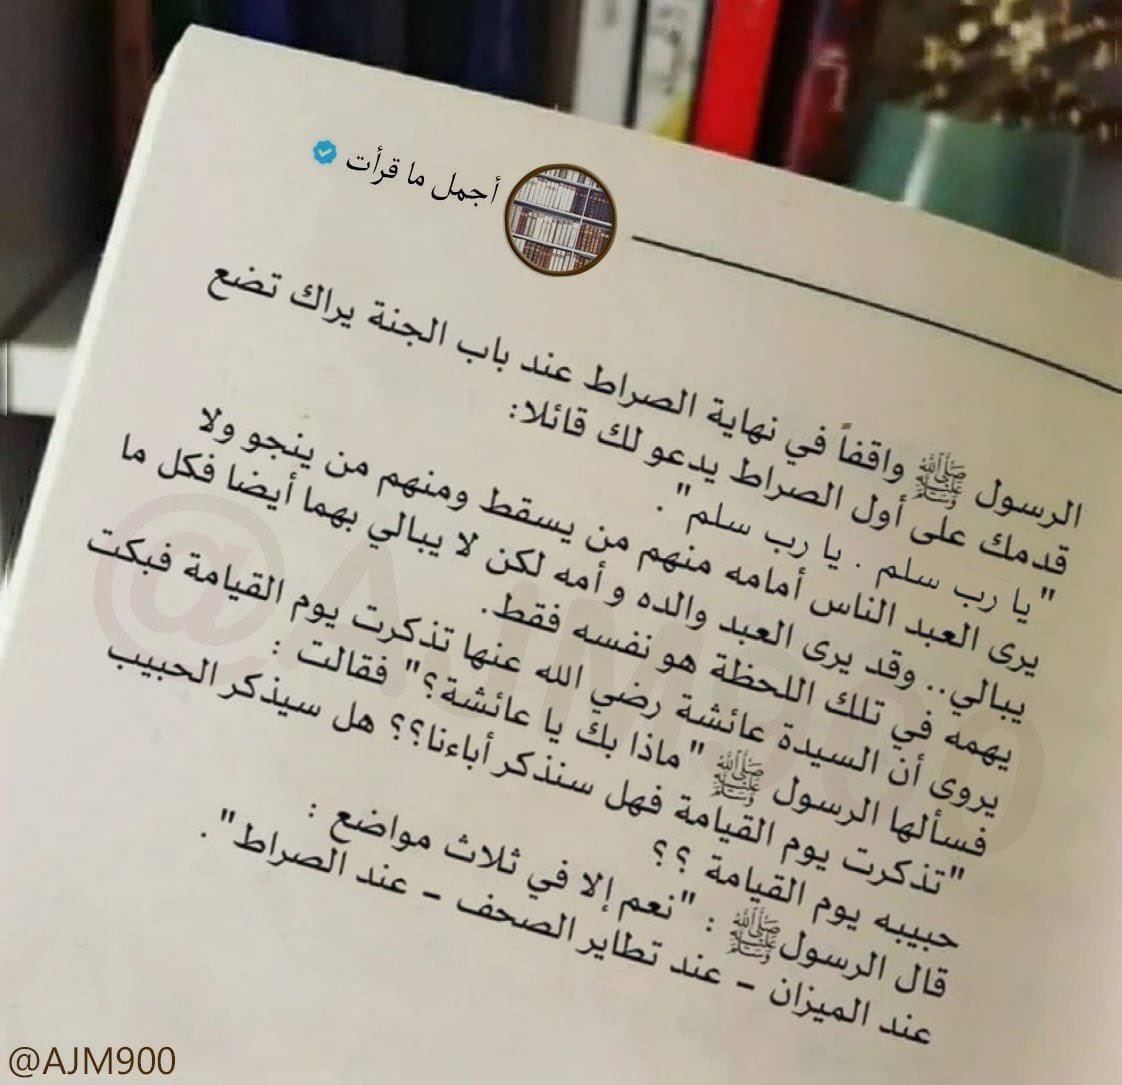 أجمل ما قرأت
الرسول ﷺ واقفاً في نهاية الصراط عند باب الجنة يراك تضع
قدمك على أول الصراط يدعو لك قائلا:
"يا رب سلم . يا رب سلم".
يرى العبد الناس أمامه منهم من يسقط ومنهم من ينجو ولا
يبالي.. وقد يرى العبد والده وأمه لكن لا يبالي بهما أيضا فكل ما
يهمه في تلك اللحظة هو نفسه فقط.
يروى أن السيدة عائشة رضي الله عنها تذكرت يوم القيامة فبكت
فسألها الرسول ﷺ "ماذا بك يا عائشة؟" فقالت :
"تذكرت يوم القيامة فهل سنذكر أباءنا؟؟ هل سيذكر الحبيب
حبيبه يوم القيامة ؟؟
قال الرسول ﷺ : "نعم إلا في ثلاث مواضع :
عند الميزان – عند تطاير الصحف – عند الصراط".
@AJM900
@AJM900